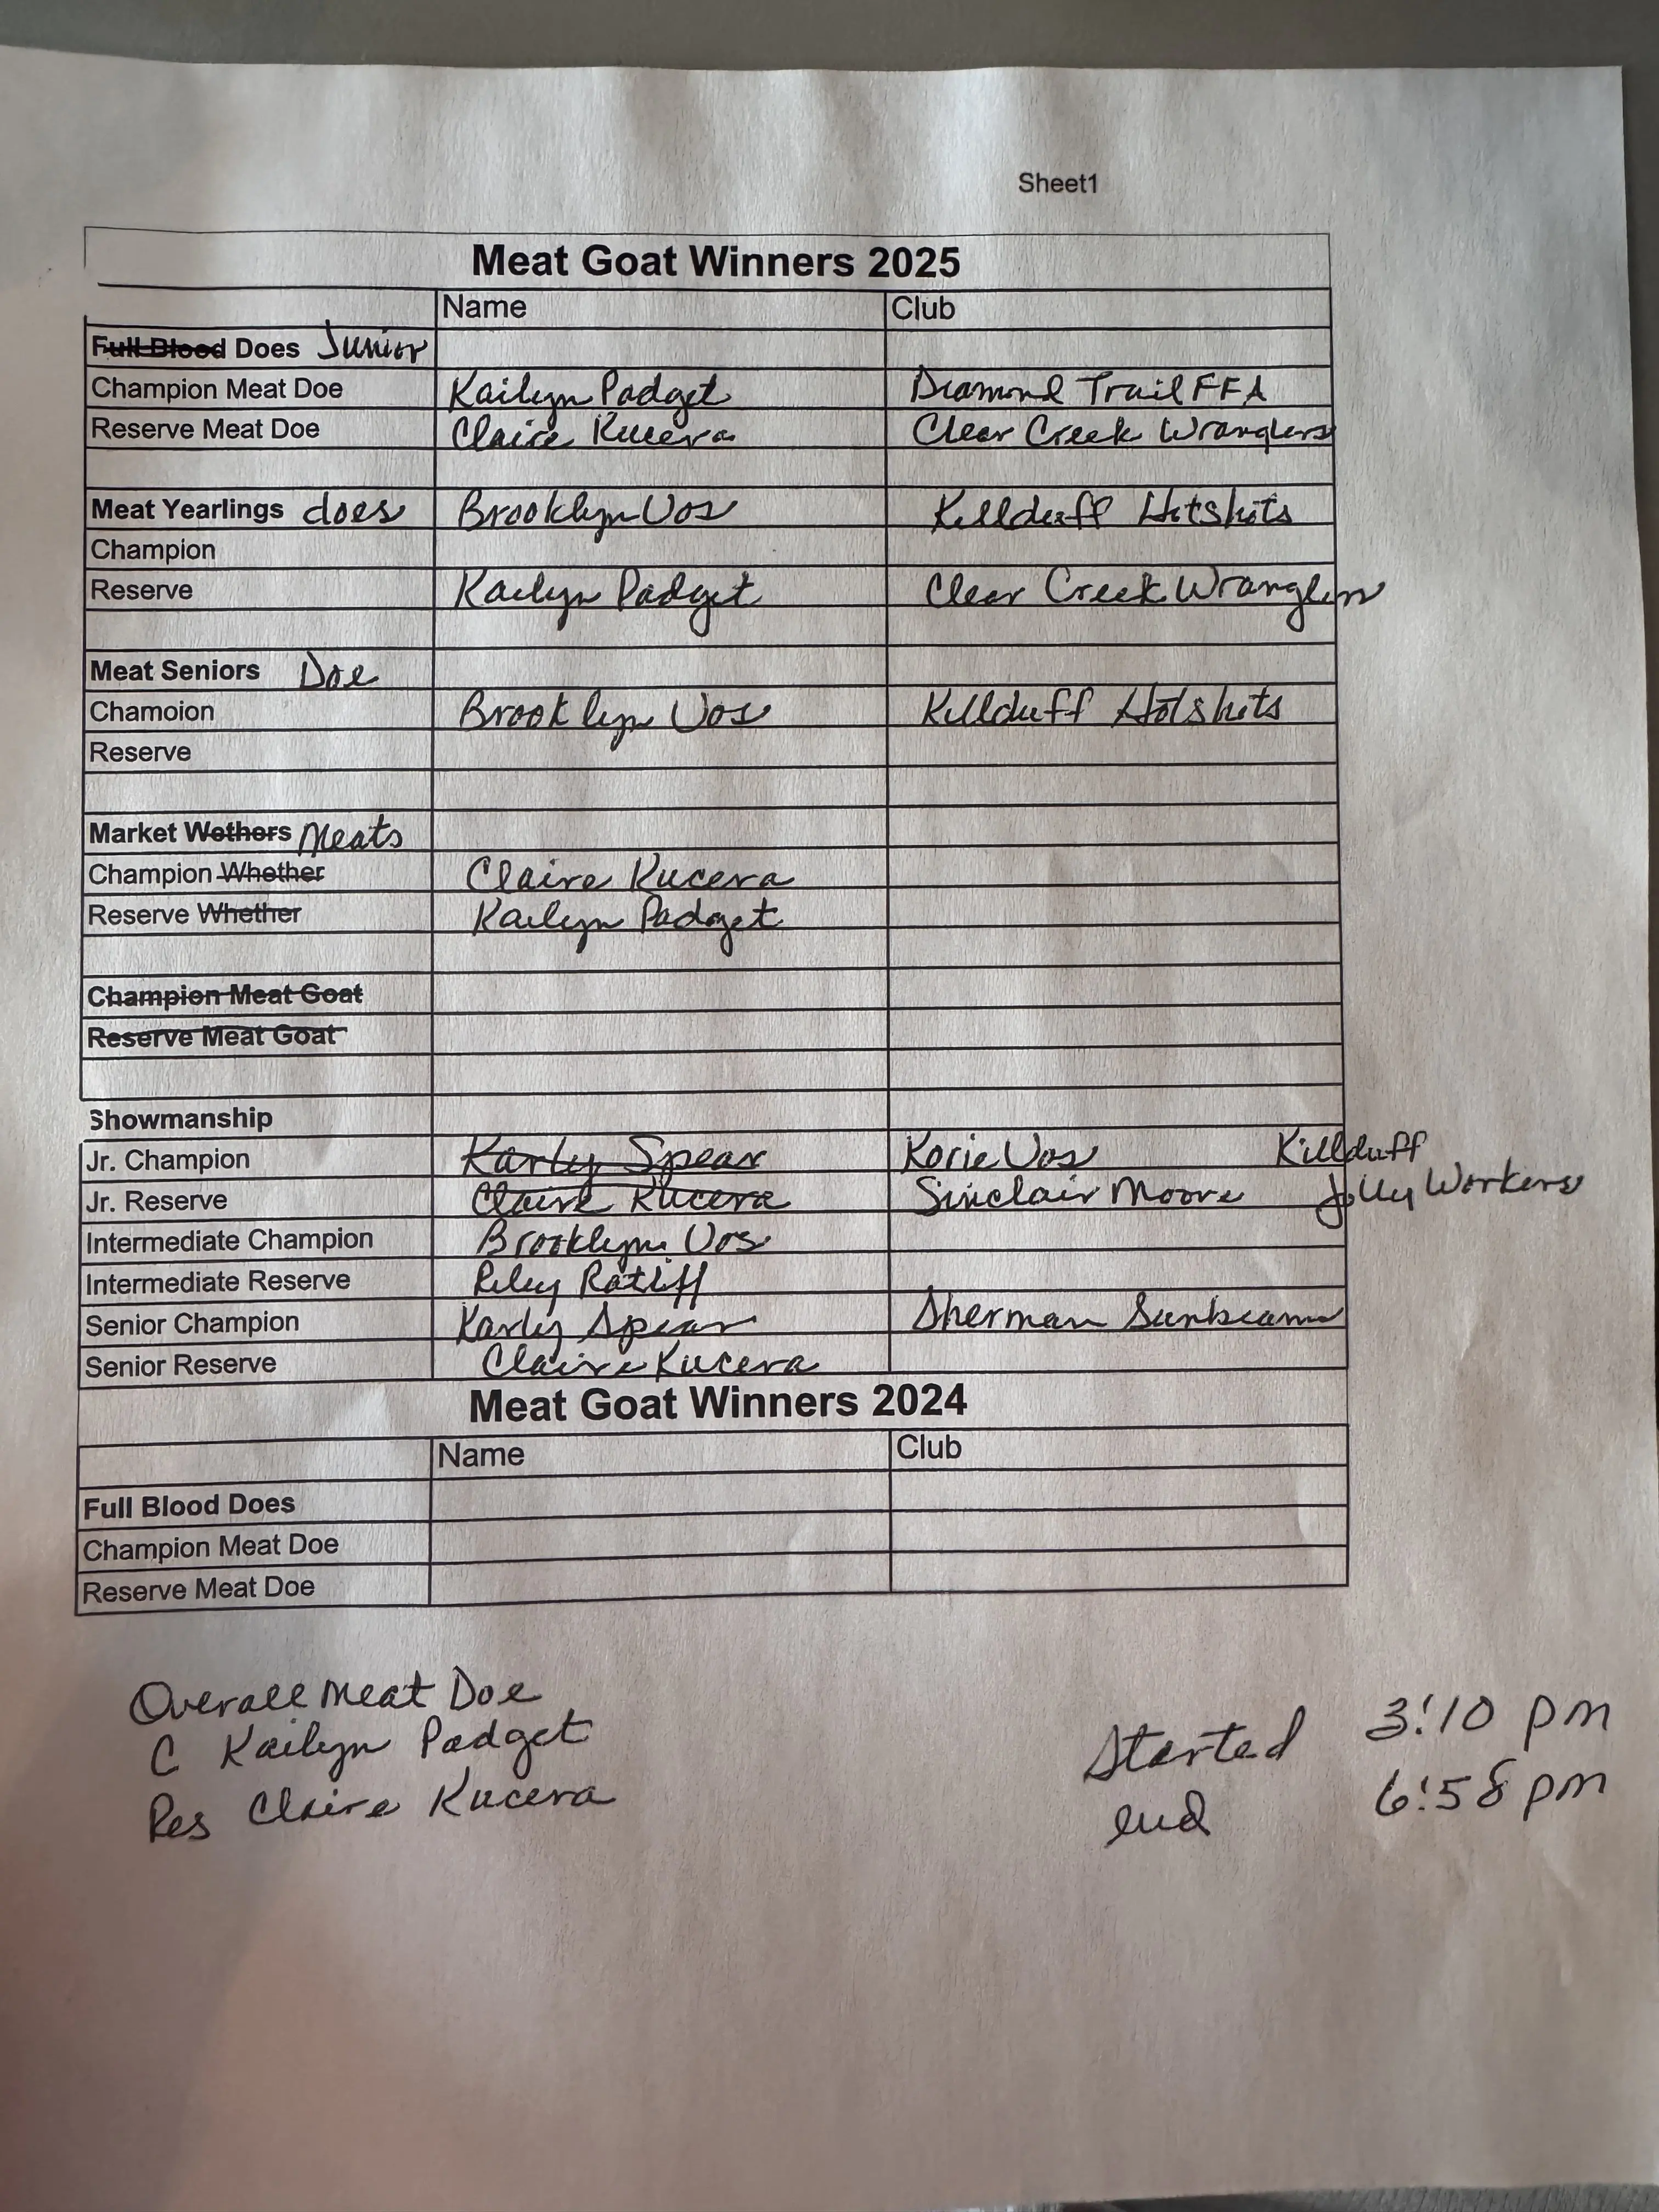 Sheet1
Meat Goat Winners 2025
Name Club
Full Blood Does Junior
Champion Meat Doe Kailyn Padget Diamond Trail FFA
Reserve Meat Doe Claire Kucera Clear Creek Wranglers
Meat Yearlings does Brooklyn Vos Killduff Hotshots
Champion
Reserve Kailyn Padget Clear Creek Wranglers
Meat Seniors Doe
Chamoion Brooklyn Vos Killduff Hotshots
Reserve
Market Wethers Meats
Champion Whether Claire Kucera
Reserve Whether Kailyn Padget
Champion Meat Goat
Reserve Meat Goat
Showmanship
Jr. Champion Karly Spear Korie Vos Killduff
Jr. Reserve Claire Kucera Sinclair Moore Jolly Workers
Intermediate Champion Brooklyn Vos
Intermediate Reserve Riley Ratliff
Senior Champion Karly Spear Sherman Sunbeams
Senior Reserve Claire Kucera
Meat Goat Winners 2024
Name Club
Full Blood Does
Champion Meat Doe
Reserve Meat Doe
Overall Meat Doe
C Kailyn Padget
Res Claire Kucera
Started 3:10 pm
end 6:58 pm